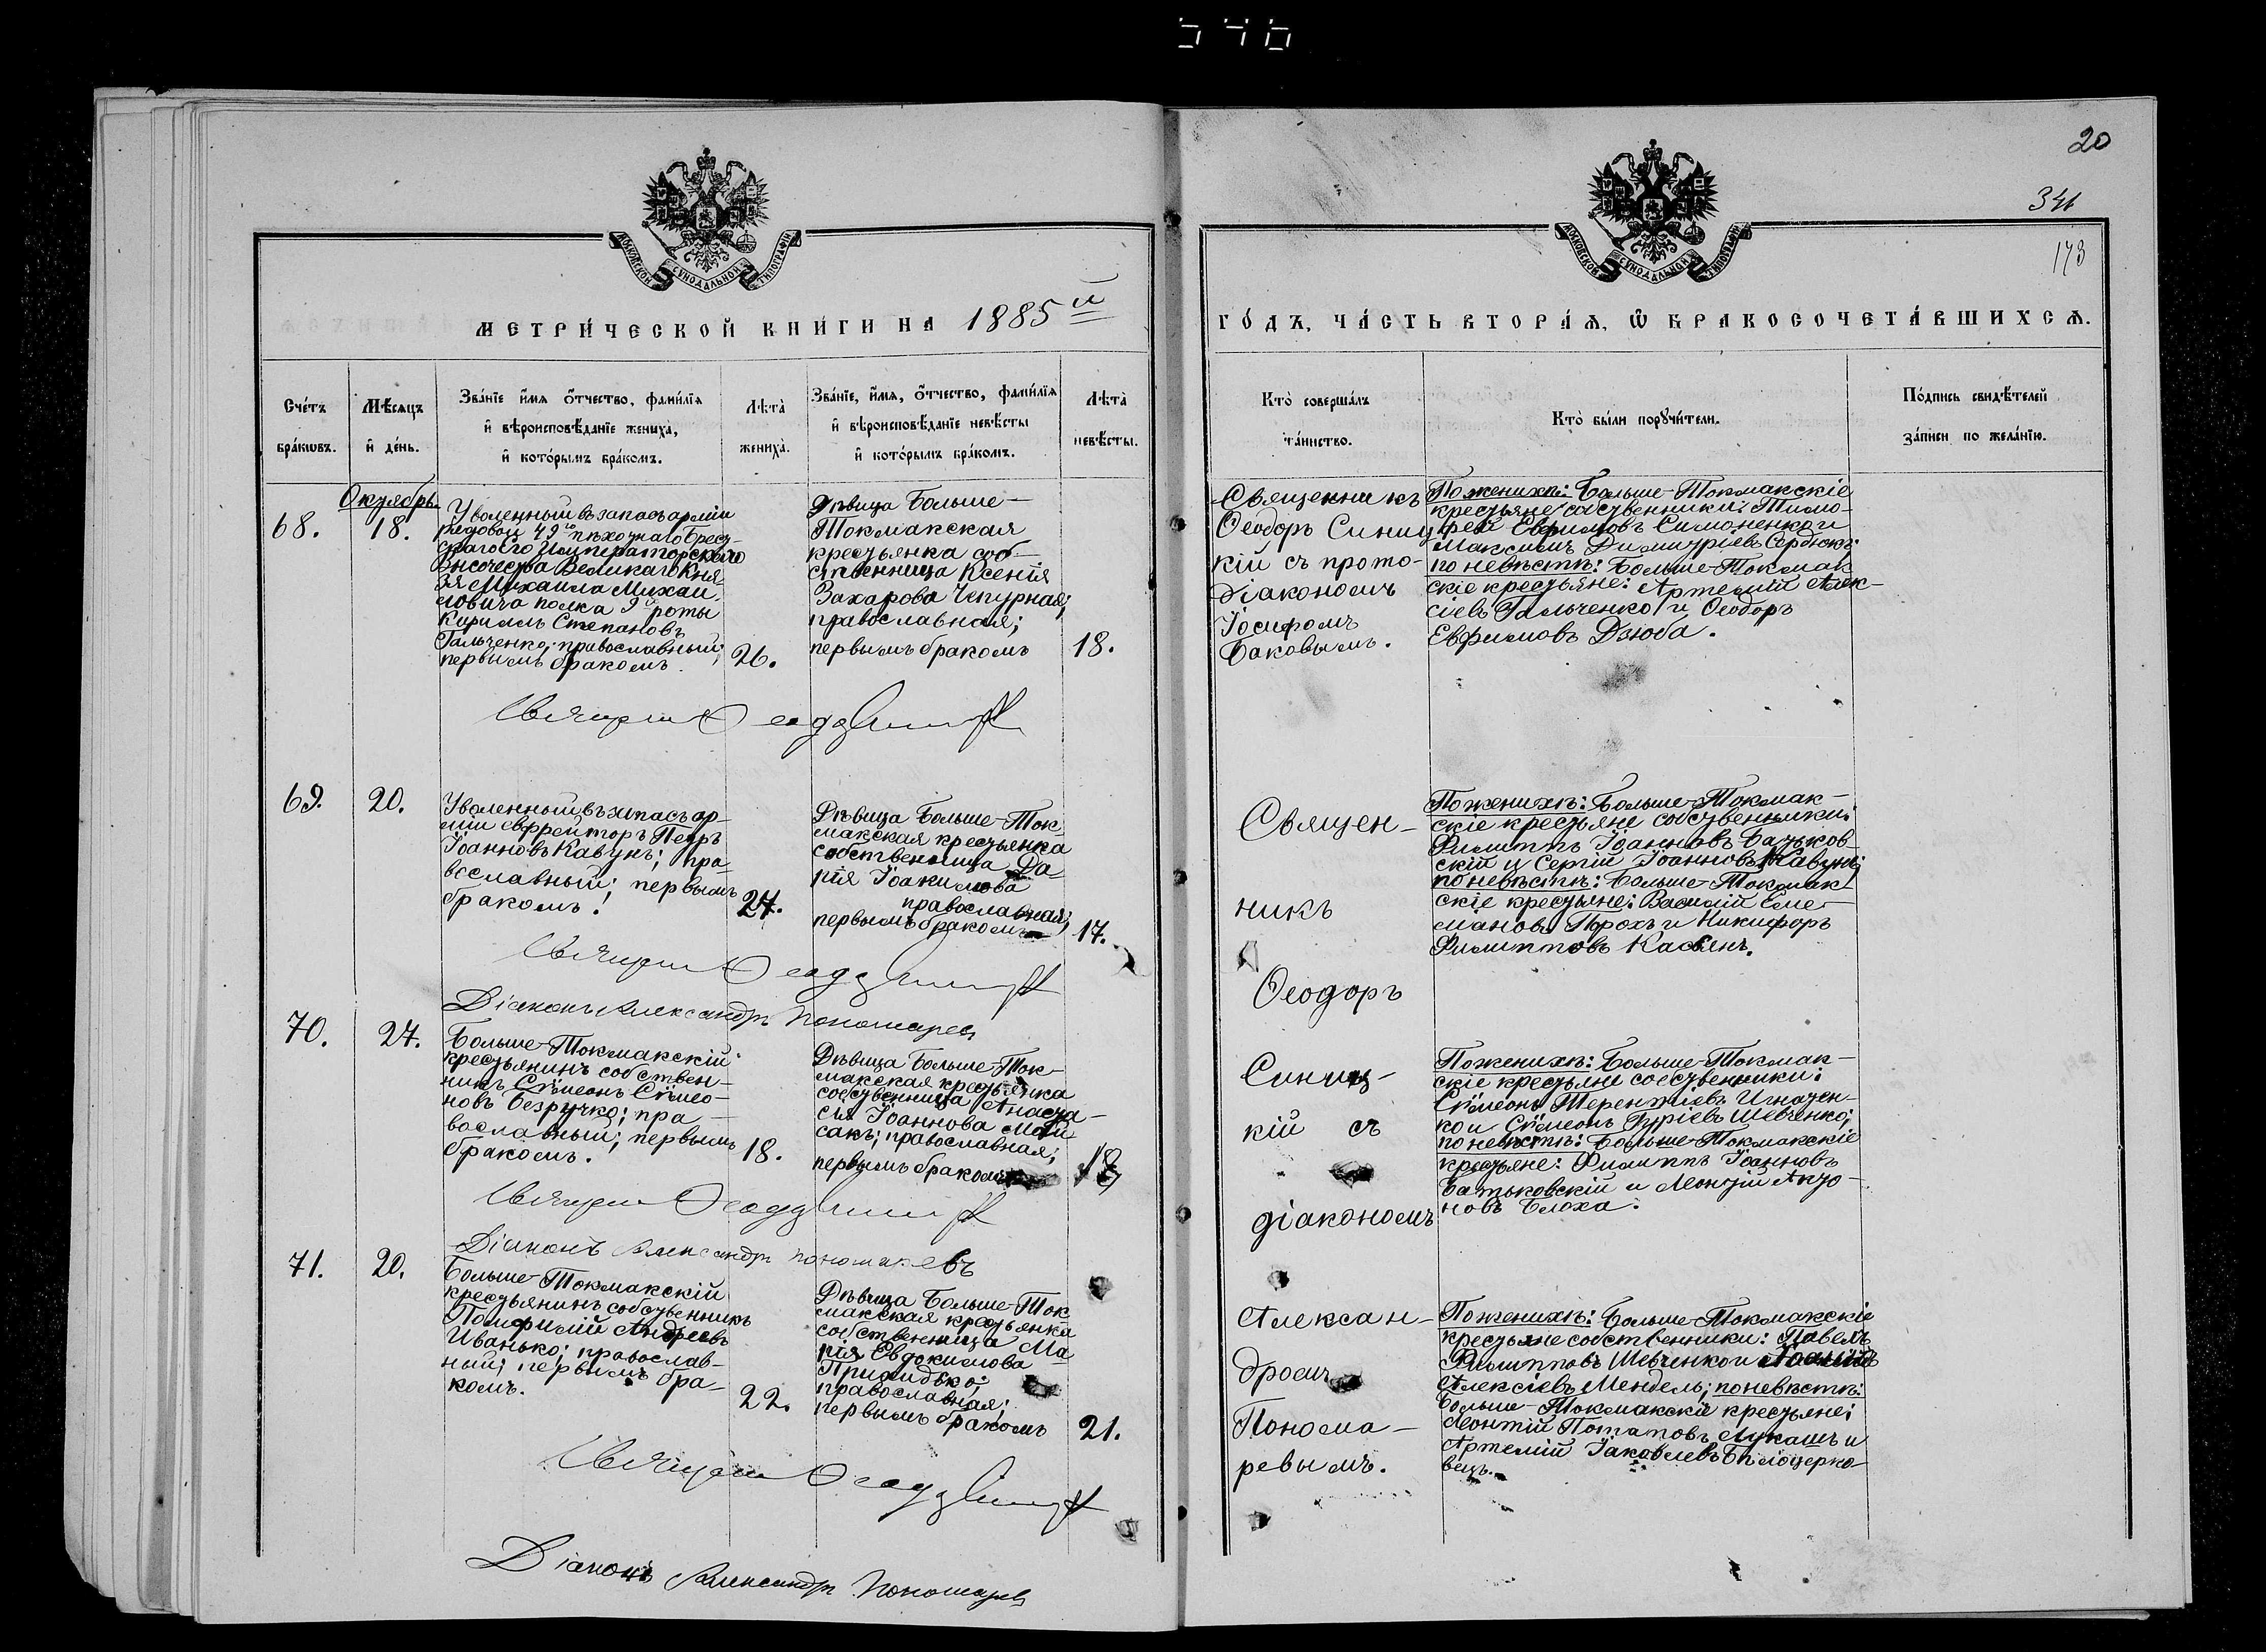 546
20
341
173
МОСКОВСКОЙ СѴНОДАЛЬНОЙ ТИПОГРАФІИ
МОСКОВСКОЙ СѴНОДАЛЬНОЙ ТИПОГРАФІИ
МЕТРИ́ЧЕСКОЙ КНИ́ГИ НА 1885й
ГО́ДЪ, ЧА́СТЬ ВТОРА́Ѧ, Ѡ БРАКОСОЧЕТА́ВШИХСѦ.
Сче́тъ
бра́кѡвъ.
Мѣ́сяцъ
и҆ де́нь.
Зва́нїе и҆́мя ѻ҆́тчество, фами́лїя
и҆ вѣроисповѣ́данїе жениха̀,
и҆ кото́рымъ бра́комъ.
Лѣта̀
жениха̀.
Зва́нїе, и҆́мя, ѻ҆́тчество, фами́лїя
и҆ вѣроисповѣ́данїе невѣ́сты
и҆ кото́рымъ бра́комъ.
Лѣта̀
невѣ́сты.
Кто̀ соверша́лъ
та́инство.
Кто̀ бы́ли порꙋчи́тели.
По́дпись свидѣ́телей
за́писи по жела́нїю.
Октябрь
68.
18.
Уволенный въ запасъ арміи
рядовой 49го пѣхотнаго Брест-
скаго Его Императорскаго
Высочества Великаго Кня-
зя Михаила Михаи
ловича полка 9й роты
Кириллъ Степановъ
Гальченко; православный;
первымъ бракомъ.
26.
Дѣвица Больше-
Токмакская
крестьянка соб-
ственница Ксенія
Захарова Чепурная;
православная;
первымъ бракомъ
18.
Священникъ
Ѳеодоръ Синиц
кій съ прото-
діакономъ
Іосифомъ
Баковымъ.
По женихѣ: Больше-Токмакскіе
крестьяне собственники: Тимо-
фей Евфимовъ Симоненко и
Максимъ Димитріевъ Сердюкъ;
по невѣстѣ: Больше-Токмак
скіе крестьяне: Артемій Алек-
сіевъ Гальченко и Ѳеодоръ
Евфимовъ Дзюба.
69.
20.
Уволенный въ запасъ ар-
міи ефрейторъ Петръ
Іоанновъ Кавунъ; пра-
вославный; первымъ
бракомъ.
24.
Дѣвица Больше-Ток
макская крестьянка
собственница Да-
рія Іоакимова
православная;
первымъ бракомъ
17.
Священ-
никъ
Ѳеодоръ
По женихѣ: Больше-Токмак-
скіе крестьяне собственники:
Филиппъ Іоанновъ Батьков-
скій и Сергій Іоанновъ Кавунъ;
по невѣстѣ: Больше-Токмак
скіе крестьяне: Василій Еме-
ліановъ Порохъ и Никифоръ
Филипповъ Касьянъ.
Діаконъ Александръ Пономарев
70.
24.
Больше-Токмакскій
крестьянинъ собствен-
никъ Сѵмеонъ Сѵмео-
новъ Безручко; пра-
вославный; первымъ
бракомъ.
18.
Дѣвица Больше-Ток-
макская крестьянка
собственница Анаста-
сія Іоаннова Мой
сакъ; православная;
первымъ бракомъ
18
Синиц-
кій съ
діакономъ
По женихѣ: Больше-Токмак-
скіе крестьяне собственники:
Сѵмеонъ Терентіевъ Игнатен-
ко и Сѵмеонъ Гуріевъ Шевченко;
по невѣстѣ: Больше-Токмакскіе
крестьяне: Филиппъ Іоанновъ
Батьковскій и Леонтій Анто-
новъ Блоха.
Діаконъ Александръ Пономаревъ
71.
20.
Больше-Токмакскій
крестьянинъ собственникъ
Памфилій Андреевъ
Иванько; православ-
ный; первымъ бра-
комъ.
22.
Дѣвица Больше-Ток
макская крестьянка
собственница Ма
рія Евдокимова
православная;
первымъ бракомъ
21.
Алексан-
дромъ
Понома-
ревымъ.
По женихѣ: Больше-Токмакскіе
крестьяне собственники: Павелъ
Филипповъ Шевченко и
Алексіевъ Мендель; по невѣстѣ:
Больше-Токмакскіе крестьяне:
Леонтій Потаповъ Лукашъ и
Артемій Іаковлевъ Бѣлоцерко-
вецъ.
Діаконъ Александръ Пономарев